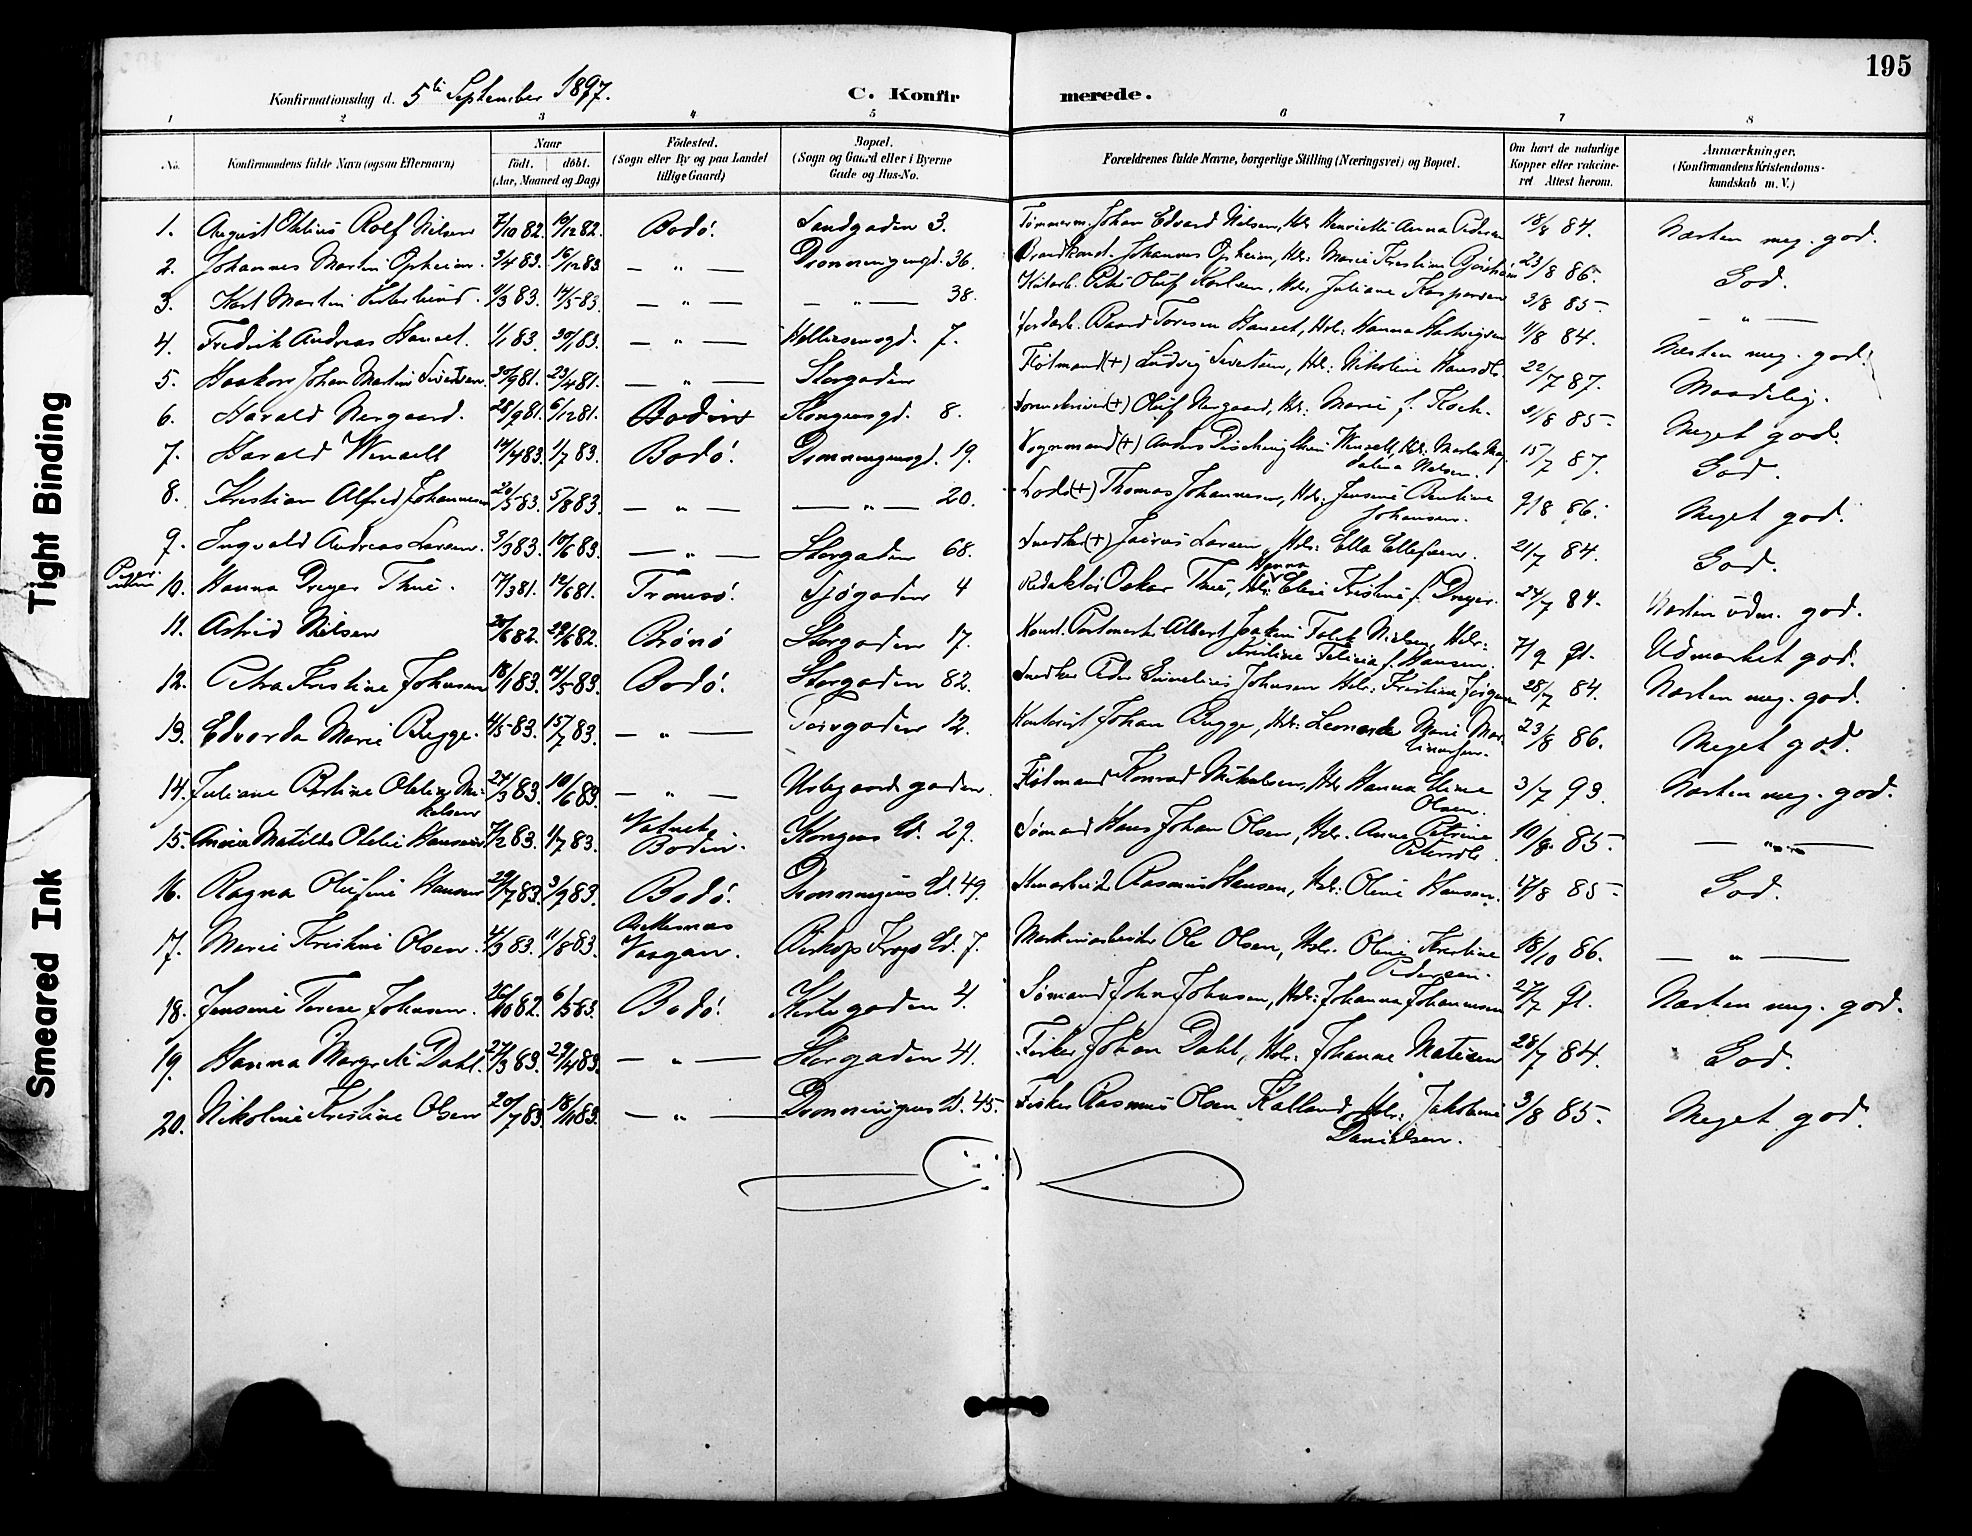 195
Konfirmationsdag d. 5te September 1897. C. Konfirmerede.
1 2 3 4 5 6 7 8
No. Konfirmandens fulde Navn (ogsaa Efternavn) Naar født. døbt. (Aar, Maaned og Dag) Födested. (Sogn eller By og paa Landet tillige Gaard) Bopæl. (Sogn og Gaard eller i Byerne Gade og Hus-No. Forældrenes fulde Navne, borgerlige Stilling (Næringsvei) og Bopæl. Om havt de naturlige Kopper eller vakcineret Attest herom. Anmærkninger, (Konfirmandens Kristendomskundskab m. V.)
1. August Otelius Rolf Nilsen 7/10 82. 10/12 82. Bodö. Sandgaden 3. Tömmerm. Johan Edvard Nilsen, Hstr Henriette Anna Pedersen 18/8 84. Næsten meg. god.
2. Johannes Martin Opheim. 3/4 83. 16/12 83 — " — Dronningensgd. 36. Brandkonst. Johannes Opheim, Hstr. Marie Kristine 23/8 86. God.
3. Karl Martin 9/3 83. 14/5 83. — " — — " — 38. Petr Oluf Karlsen, Hstr. Juliane Kaspersen 3/8 85. — " —
4. Fredrik Andreas 1/1 83. 30/1 83. — " — 7. Jordarb. Baard Toresen Hstr. Hanna Hartvigsen 11/8 84. Næsten meg. god.
5. Haakon Johan Martin Sivertsen. 30/9 81. 23/4 81. — " — Storgaden Fløtmand (+) Ludvig Sivertsen, Hstr. Nikoline Hansdtr. 22/7 87. Maadelig.
6. Harald Nergaard. 28/9 81. 6/12 81. Bodin Kongensgd. 8. (+) Oluf Nergaard, Hstr. Marie f. Koch. 31/8 85. Meget god.
7. Harald Wensell 14/4 83. 1/7 83. Bodö. Dronningensgd. 19. Vognmand (+) Anders Wensell, Hstr. Marta Magdalena Nilsen. 15/7 87. God.
8. Kristian Alfred Johannesen 20/5 83. 5/8 83. — " — — " — 20. Lods (+) Thomas Johannesen, Hstr. Jensine Bentine Johansen. 9/8 86. Meget god.
9. Ingvald Andreas Larsen. 3/3 83. 10/6 83. — " — Storgaden 68. Snedker (+) Jairus Larsen, Hstr. Ella Ellefsen. 21/7 84. God.
10. Hanna Dreyer Thue. 17/3 81. 12/6 81. Tromsö. Sjøgaden 4 Redaktør Oskar Thue, Hstr. Hanna Eline Kristine f. Dreyer. 24/7 84. Næsten udm. god.
11. Astrid Nielsen 20/6 82. 29/6 82. Brönö Storgaden 17. Konst. Postmest. Albert Joakim Falck Nielsen, Hstr. Kristine Felicia f. Hansen. 7/9 91. Udmærket god.
12. Petra Kristine Johnsen 18/1 83. 14/5 83. Bodö. Storgaden 82. Snedker Peder Johnsen Hstr. Kristine 28/7 84. Næsten meg. god.
13. Edvarda Marie Bugge. 4/5 83. 15/7 83. — " — Torvgaden 12. Kontorist Johan Bugge, Hstr. Leonarde Marie 23/8 86. Meget god.
14. Juliane Bertine Oteline Mikelsen 27/3 83. 10/6 83. — " — gaden. Fløtmand Konrad Mikalsen, Hstr Hanna Eline Olsen. 3/7 93. Næsten meg. god.
15. Matilde Otelie Hansen 7/2 83. 1/7 83. Bodin. Kongens Gd. 29. Sømand Hans Johan Olsen, Hstr. Anna Petrine Petersdtr. 10/8 85. — " —
16. Ragna Olufine Hansen 29/7 83. 3/9 83. Bodö. Dronningens Gd. 49. Stenarbeid. Rasmus Hansen, Hstr. Oline Hansen. 4/8 85. God.
17. Marie Kristine Olsen. 4/3 83. 11/8 83. Brettesnæs Vaagan. Biskop Krogs Gd. 7. Maskinarbeider Ole Olsen, Hstr. Oline Kristine Pedersen. 18/10 86. — " —
18. Jensine Terese Johnsen. 26/10 82. 6/5 83. Bodö. Kirkegaden 4. Sømand John Johnsen, Hstr. Johanna Johannesen 27/7 91. Næsten meg. god.
19. Hanna Margrete Dahl. 27/3 83. 29/4 83. — " — Storgaden 41. Fisker Johan Dahl, Hstr. Johanne Matisen 28/7 84. God.
20. Nikoline Kristine Olsen 20/7 83. 18/11 83. — " — Dronningens Gd. 45. Fisker Rasmus Olsen Kalland, Hstr. Jakobine Danielsen. 3/8 85. Meget god.
Tight Binding
Smeared Ink